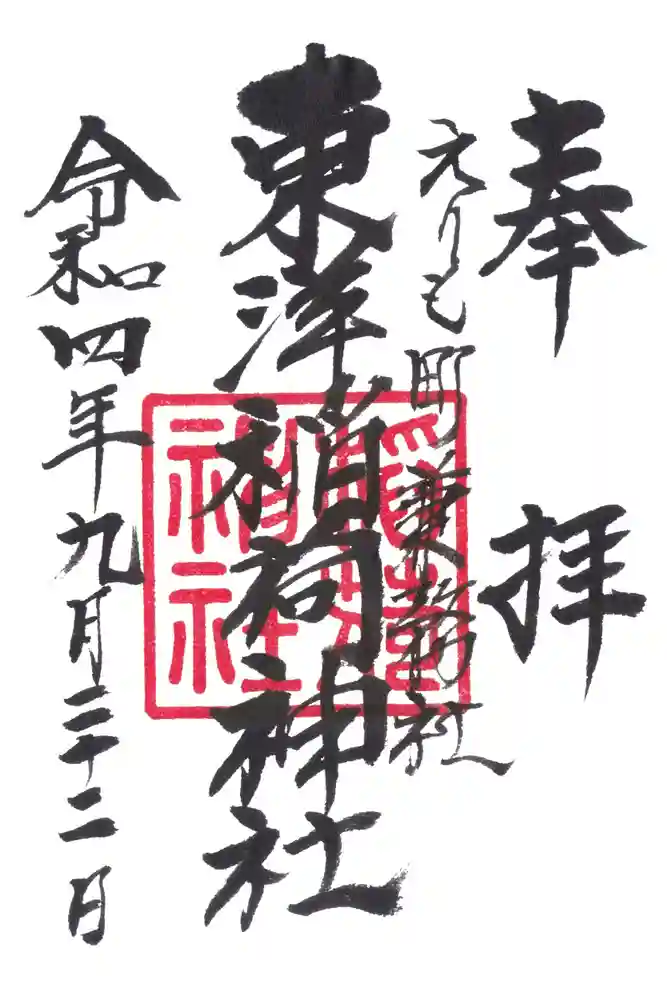 奉拝
えりも町兼務社
東洋稲荷神社
令和四年九月二十二日